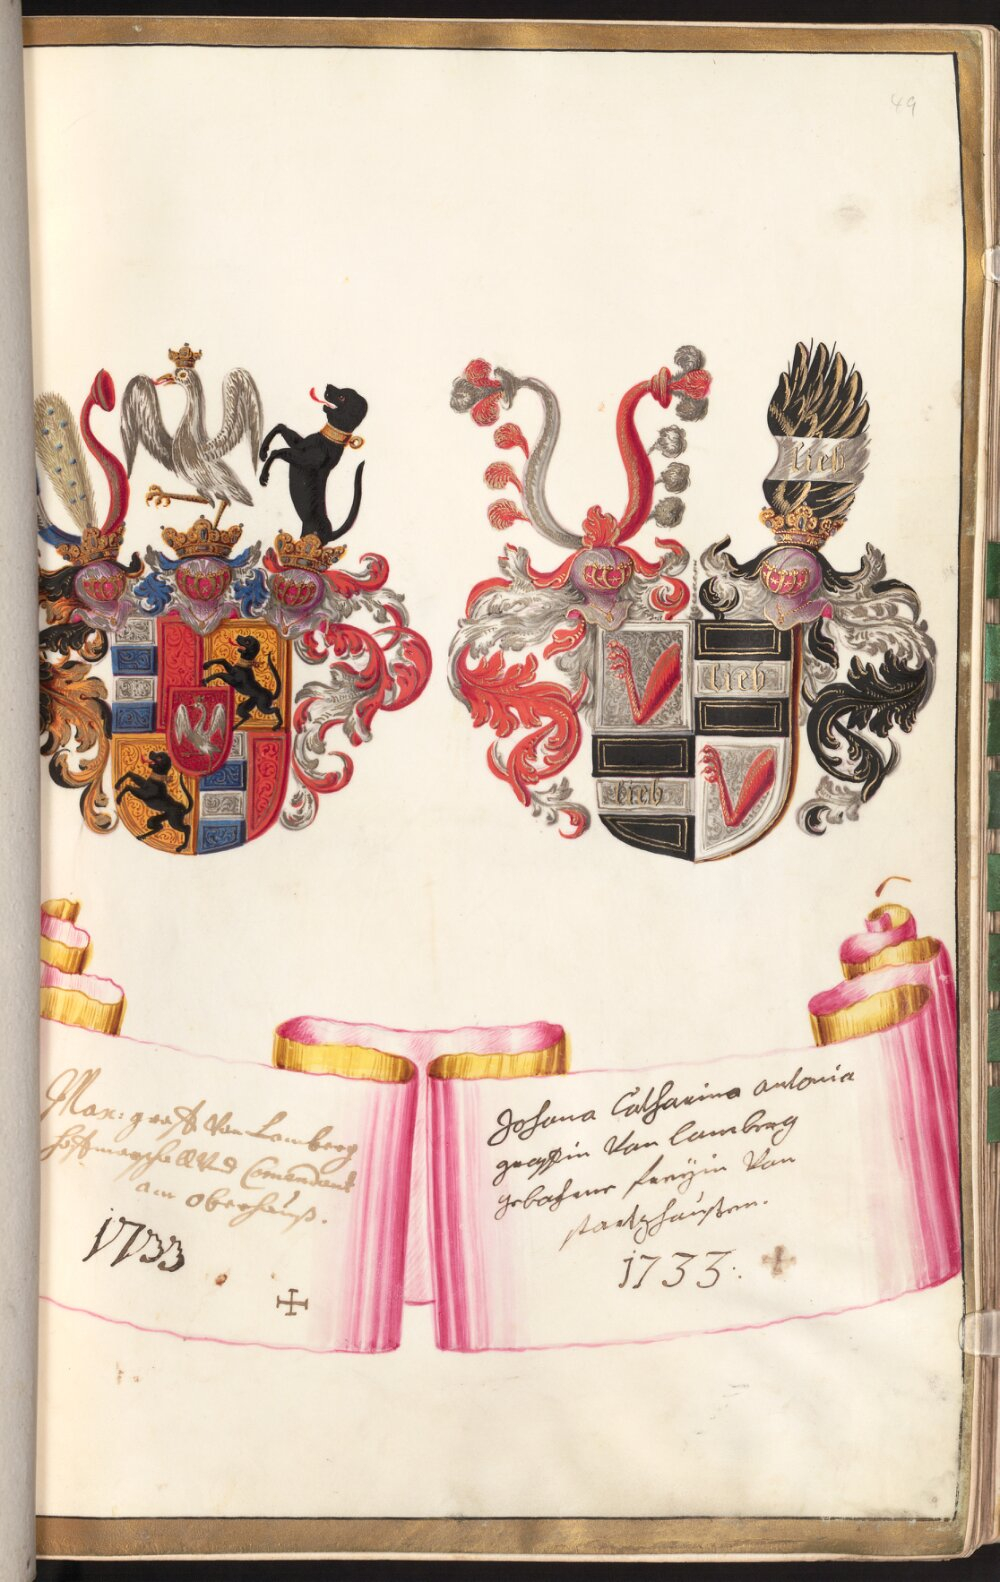 49
lieb
lieb
lieb
Max: graff Von Lamberg
hoffmarschall Vnd Comendant
am oberhauß.
1733
Johana Catharina antonia
graffin Von lamberg
gebohrne freyin Von
1733.